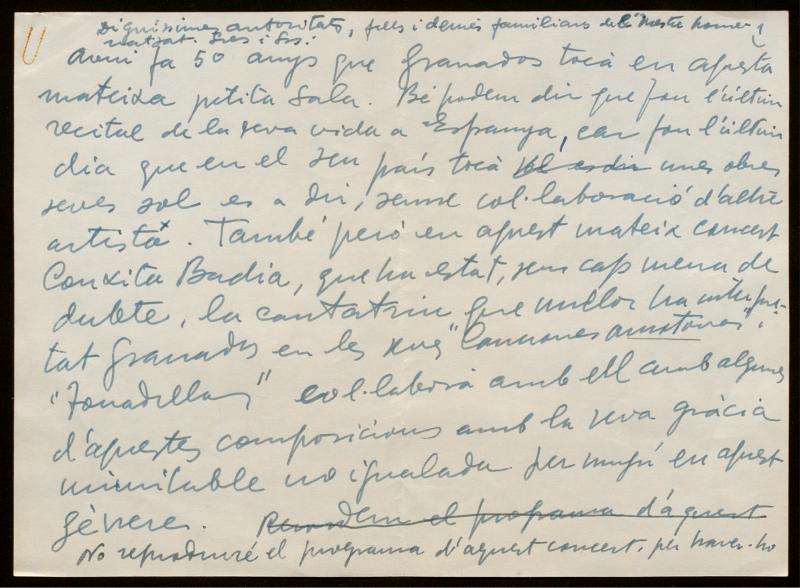 Digníssimes autoritats, fills i demés familiars del Mestre home-
natjat. Sres i Srs:
Avui fa 50 anys que Granados tocà en aquesta
mateixa petita sala. Bé podem dir que fou l'últim
recital de la seva vida a Espanya, car fou l'últim
dia que en el seu país tocà vol es dir unes obres
seves sol es a dir, sense col·laboració d'altre
artista. També però en aquest mateix concert
Conxita Badia, que ha estat, sens cap mena de
dubte, la cantatriu que millor ha interpre-
tat Granados en les seves "Canciones amatorias" i
"Tonadillas" col·laborà amb ell amb algunes
d'aquestes composicions amb la seva gràcia
inimitable no igualada per ningú en aquest
gènere. Recordem el programa d'aquest
No reproduiré el programa d'aquest concert, per haver-ho